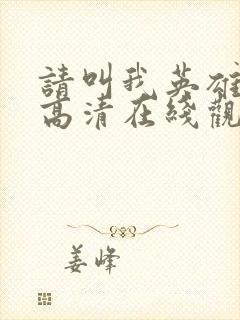 請叫我英雄
高清在綫觀
姜峰